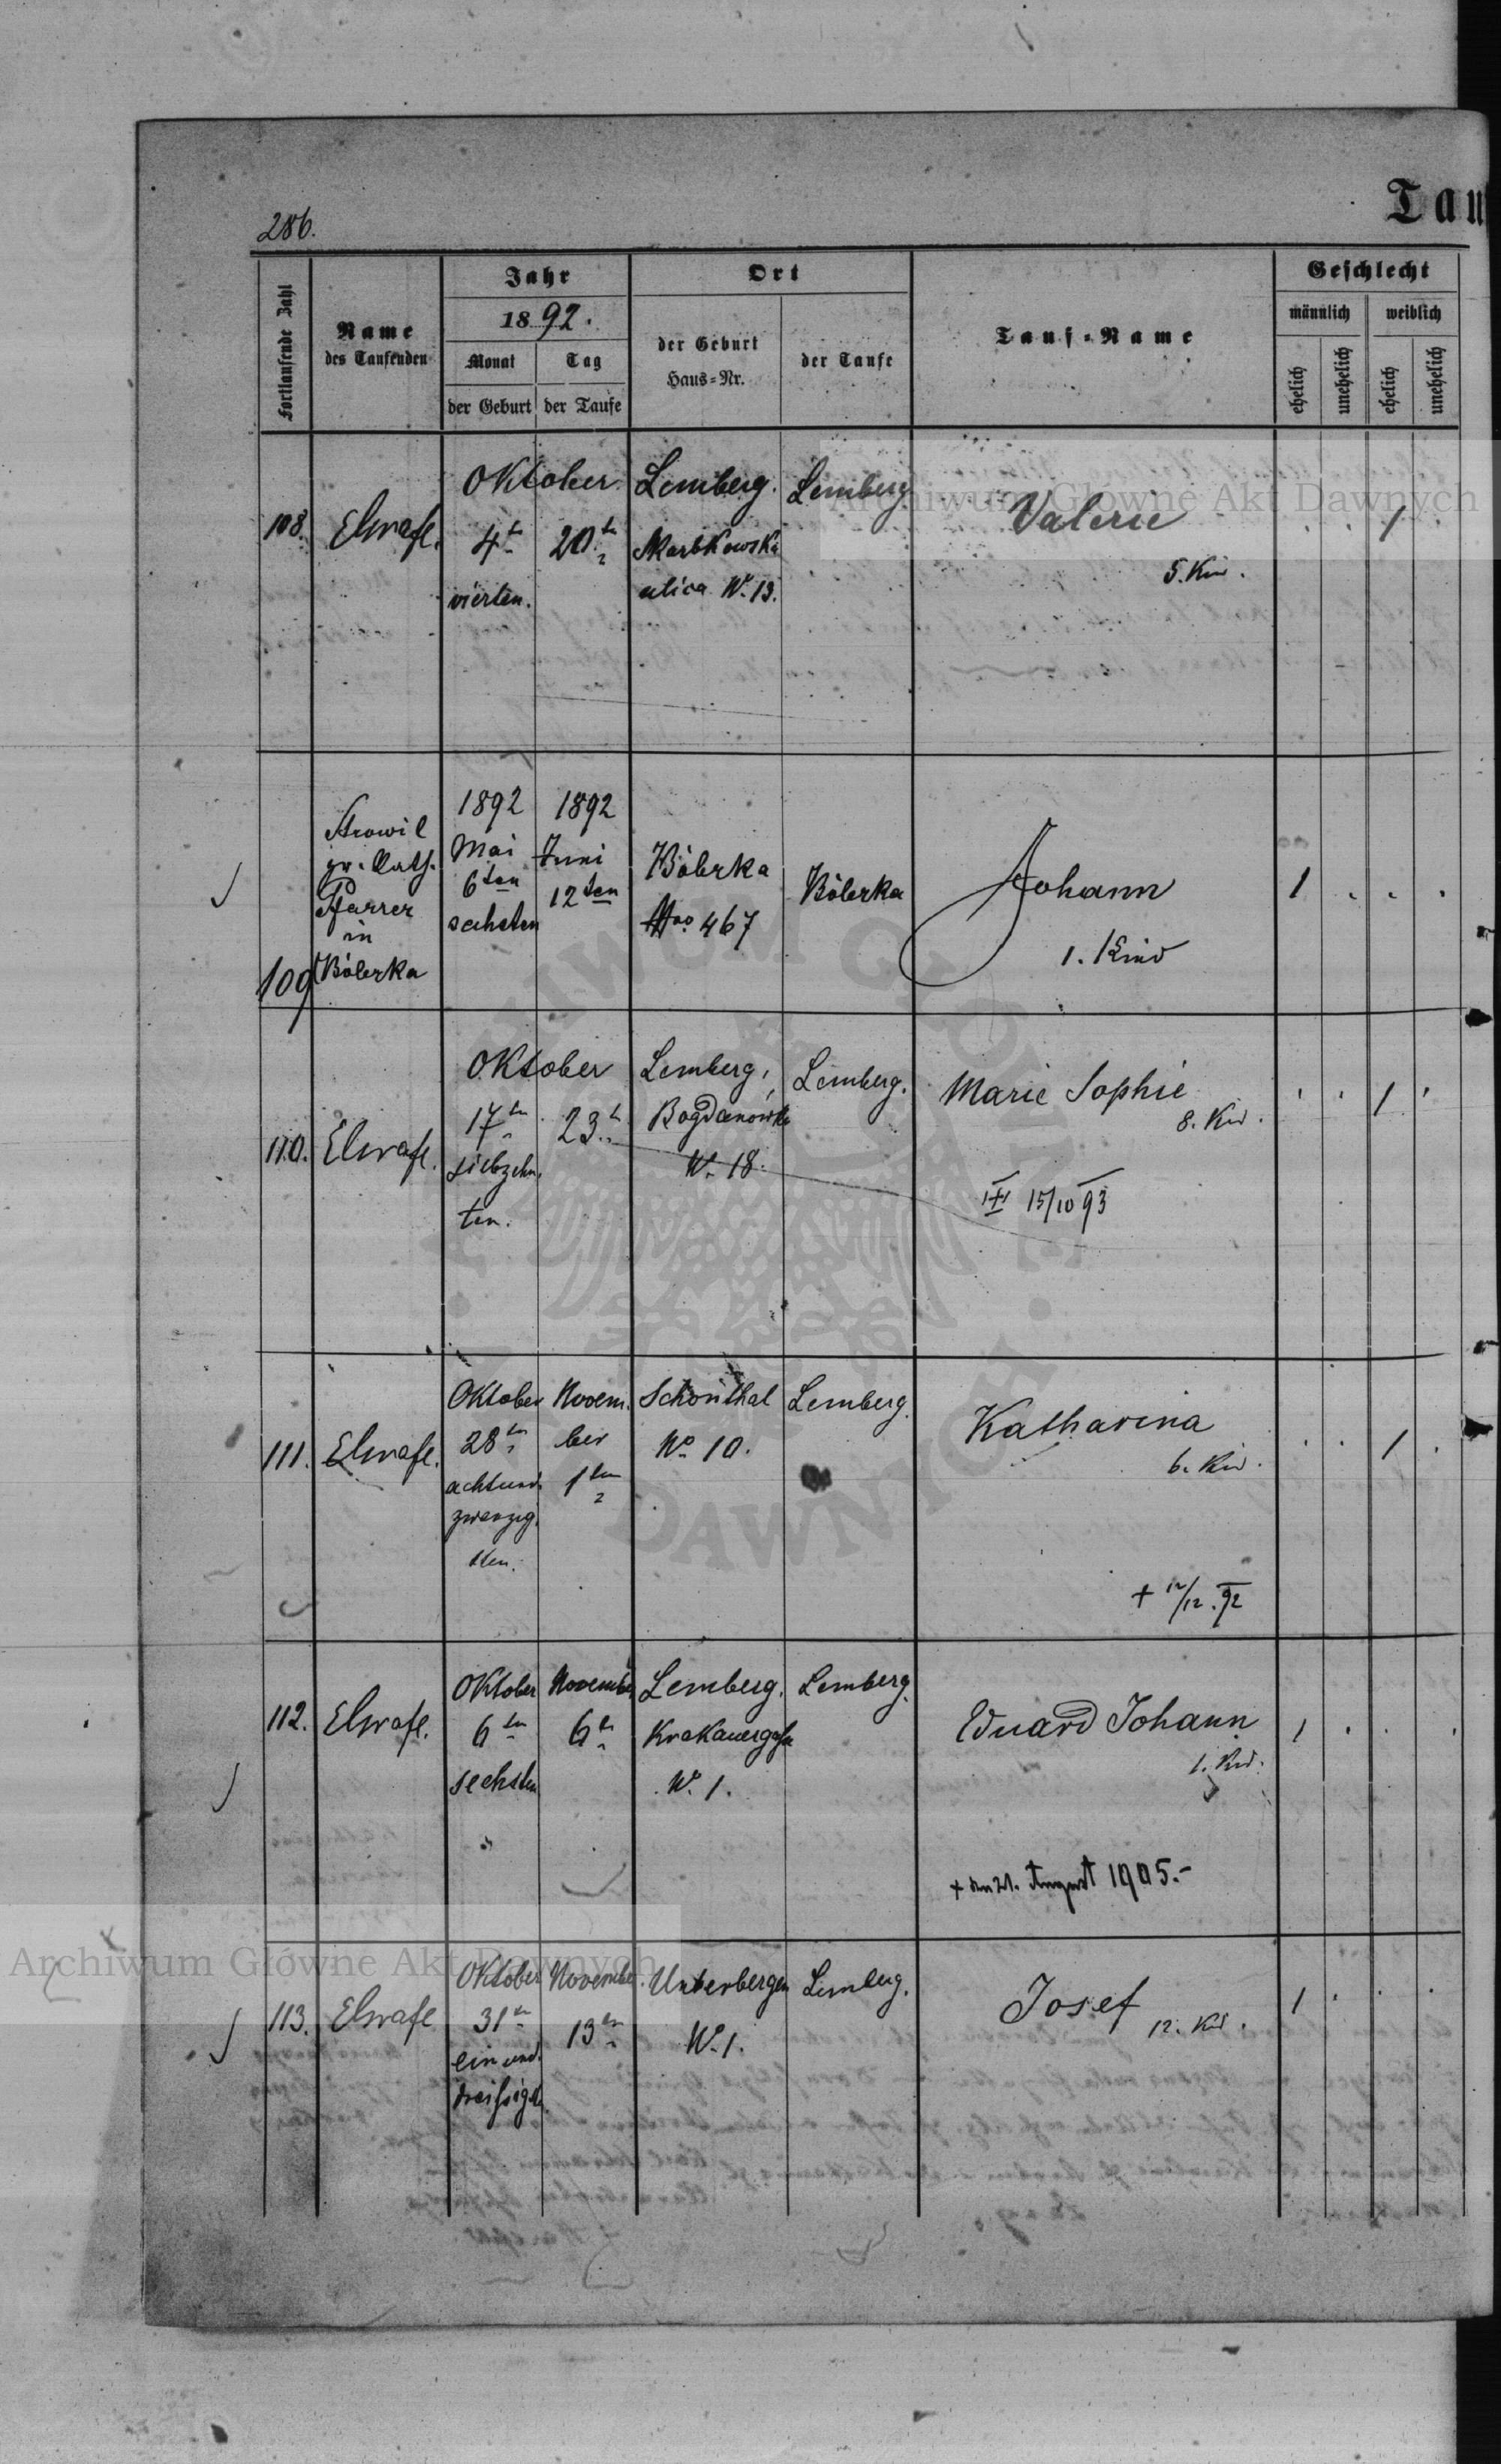 286.
Tau
Fortlaufende Zahl
Name
des Taufenden
Jahr
1892.
Monat
Tag
der Geburt
der Taufe
Ort
der Geburt
Haus=Nr.
der Taufe
Tauf=Name
Geschlecht
männlich
weiblich
ehelich
unehelich
ehelich
unehelich
108.
Oktober
4ten
vierten.
20ten
Lemberg.
ulica No. 13.
Lemberg
Valerie
5. Kind.
1
109
gr. kath.
Pfarrer
in
Bóbrka
1892
Mai
6ten
sechsten
1892
Juni
12ten
Bóbrka
Nro 467
Bóbrka
Johann
1. Kind
1
110.
Oktober
17ten
siebzehn
ten.
23.
Lemberg,
Bogdanówka
No. 18.
Lemberg.
Marie Sophie
8. Kind.
15/10 93
1
111.
Oktober
28ten
achtund
zwanzig
sten.
Novem
ber
1ten
Schönthal
No 10.
Lemberg.
Katharina
6. Kind.
+ 12/12. 92
1
112.
Oktober
6ten
sechsten
November
6ten
Lemberg.
Krakauergasse
No. 1.
Lemberg.
Eduard Johann
1. Kind.
+ den 21. August 1905.-
1
113.
Oktober
31ten
ein und
dreißigsten
November
13ten
Unterbergen
No. 1.
Lemberg.
Josef
12. Kind.
1
Archiwum Główne Akt Dawnych
Archiwum Główne Akt Dawnych
ARCHIWUM GŁÓWNE AKT DAWNYCH